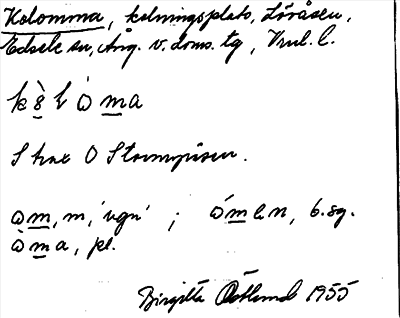 Kolomma, kolningsplats, Lövåsen,
Edsele sn, Ång. v. doms. tg, Vrul. l.
kö̀l ò̱ma
S k O Stormyråsen.
o̱m, m, 'ugn' ; ó̱mɛn, b.sg.
ò̱ma, pl.
Birgitta Östlund 1955